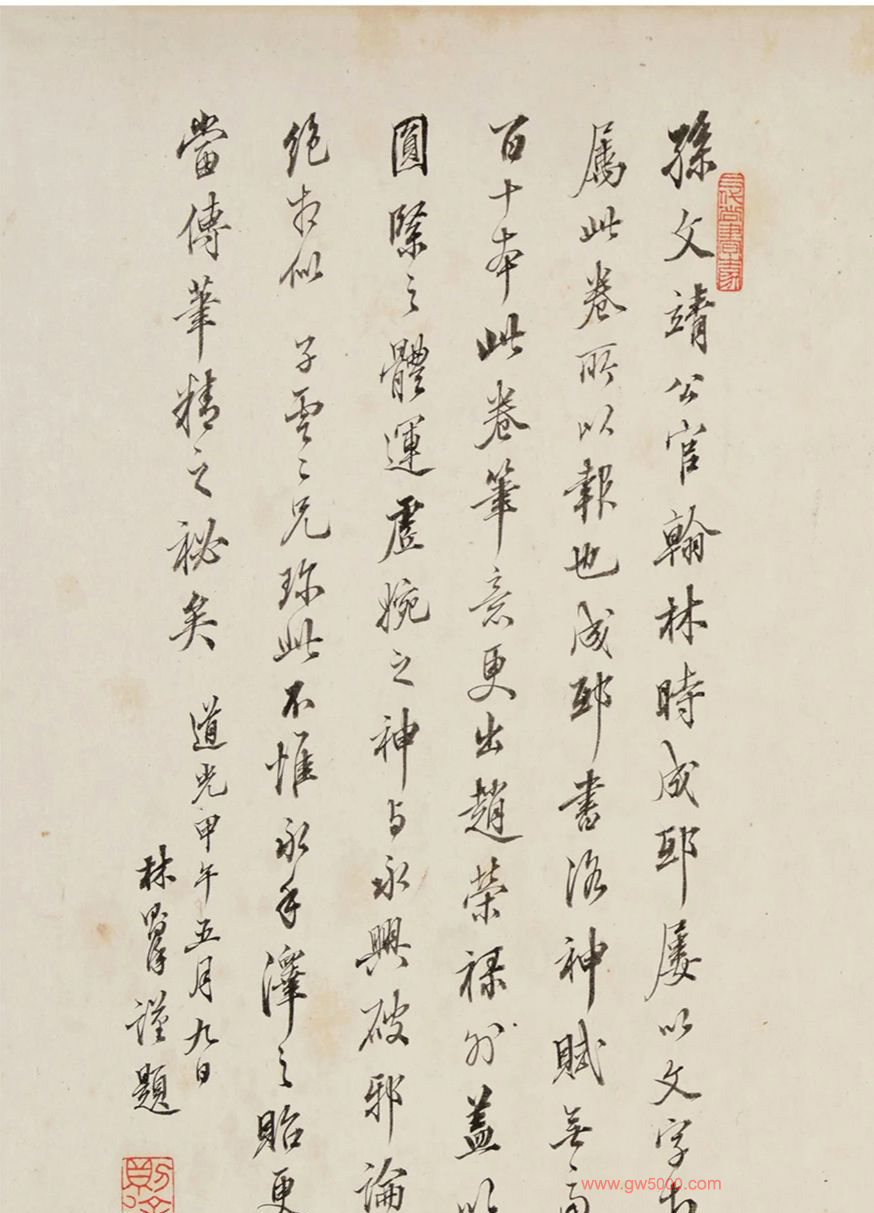 孫文靖公官翰林時成邸屢以文字相
屬此卷所以報也成邸書洛神賦無慮
百十本此卷筆意更出趙榮祿外蓋以
圓緊之體運虛婉之神与永興破邪論
絕相似 子雲二兄珎此不惟永手澤之貽更
當傳筆精之祕矣 道光甲午五月九日
林則徐謹題
www.gw5000.com